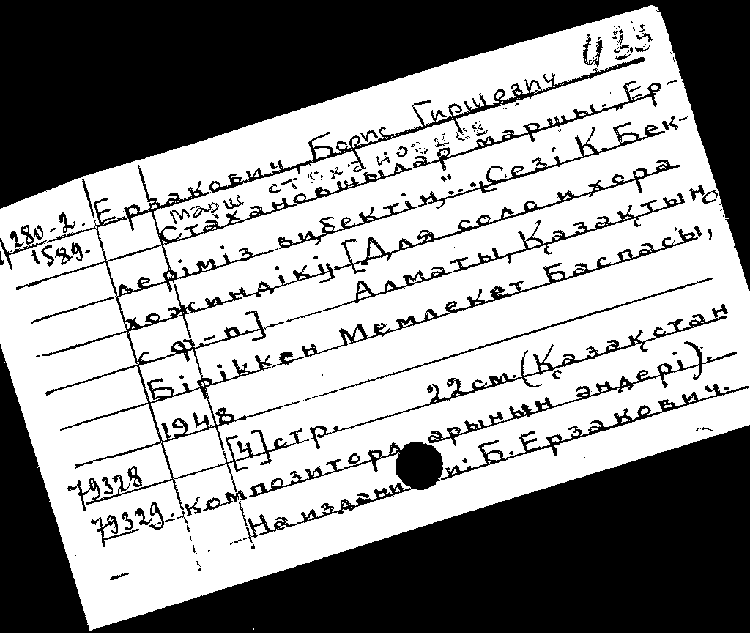 433
Ерзакович, Борис Гиршевич
марш стахановцев
280-2.
1589.
Стахановшылар маршы. "Ер-
леріміз еңбектің"... Сөзі К. Бек-
хожиндікі. [Для соло и хора
с ф-п.] Алматы, Қазақтың
Біріккен Мемлекет Баспасы,
1948.
[4] стр. 22 см. (Қазақстан
композиторларының әндері).
На издании: Б. Ерзакович.
79328
79329.